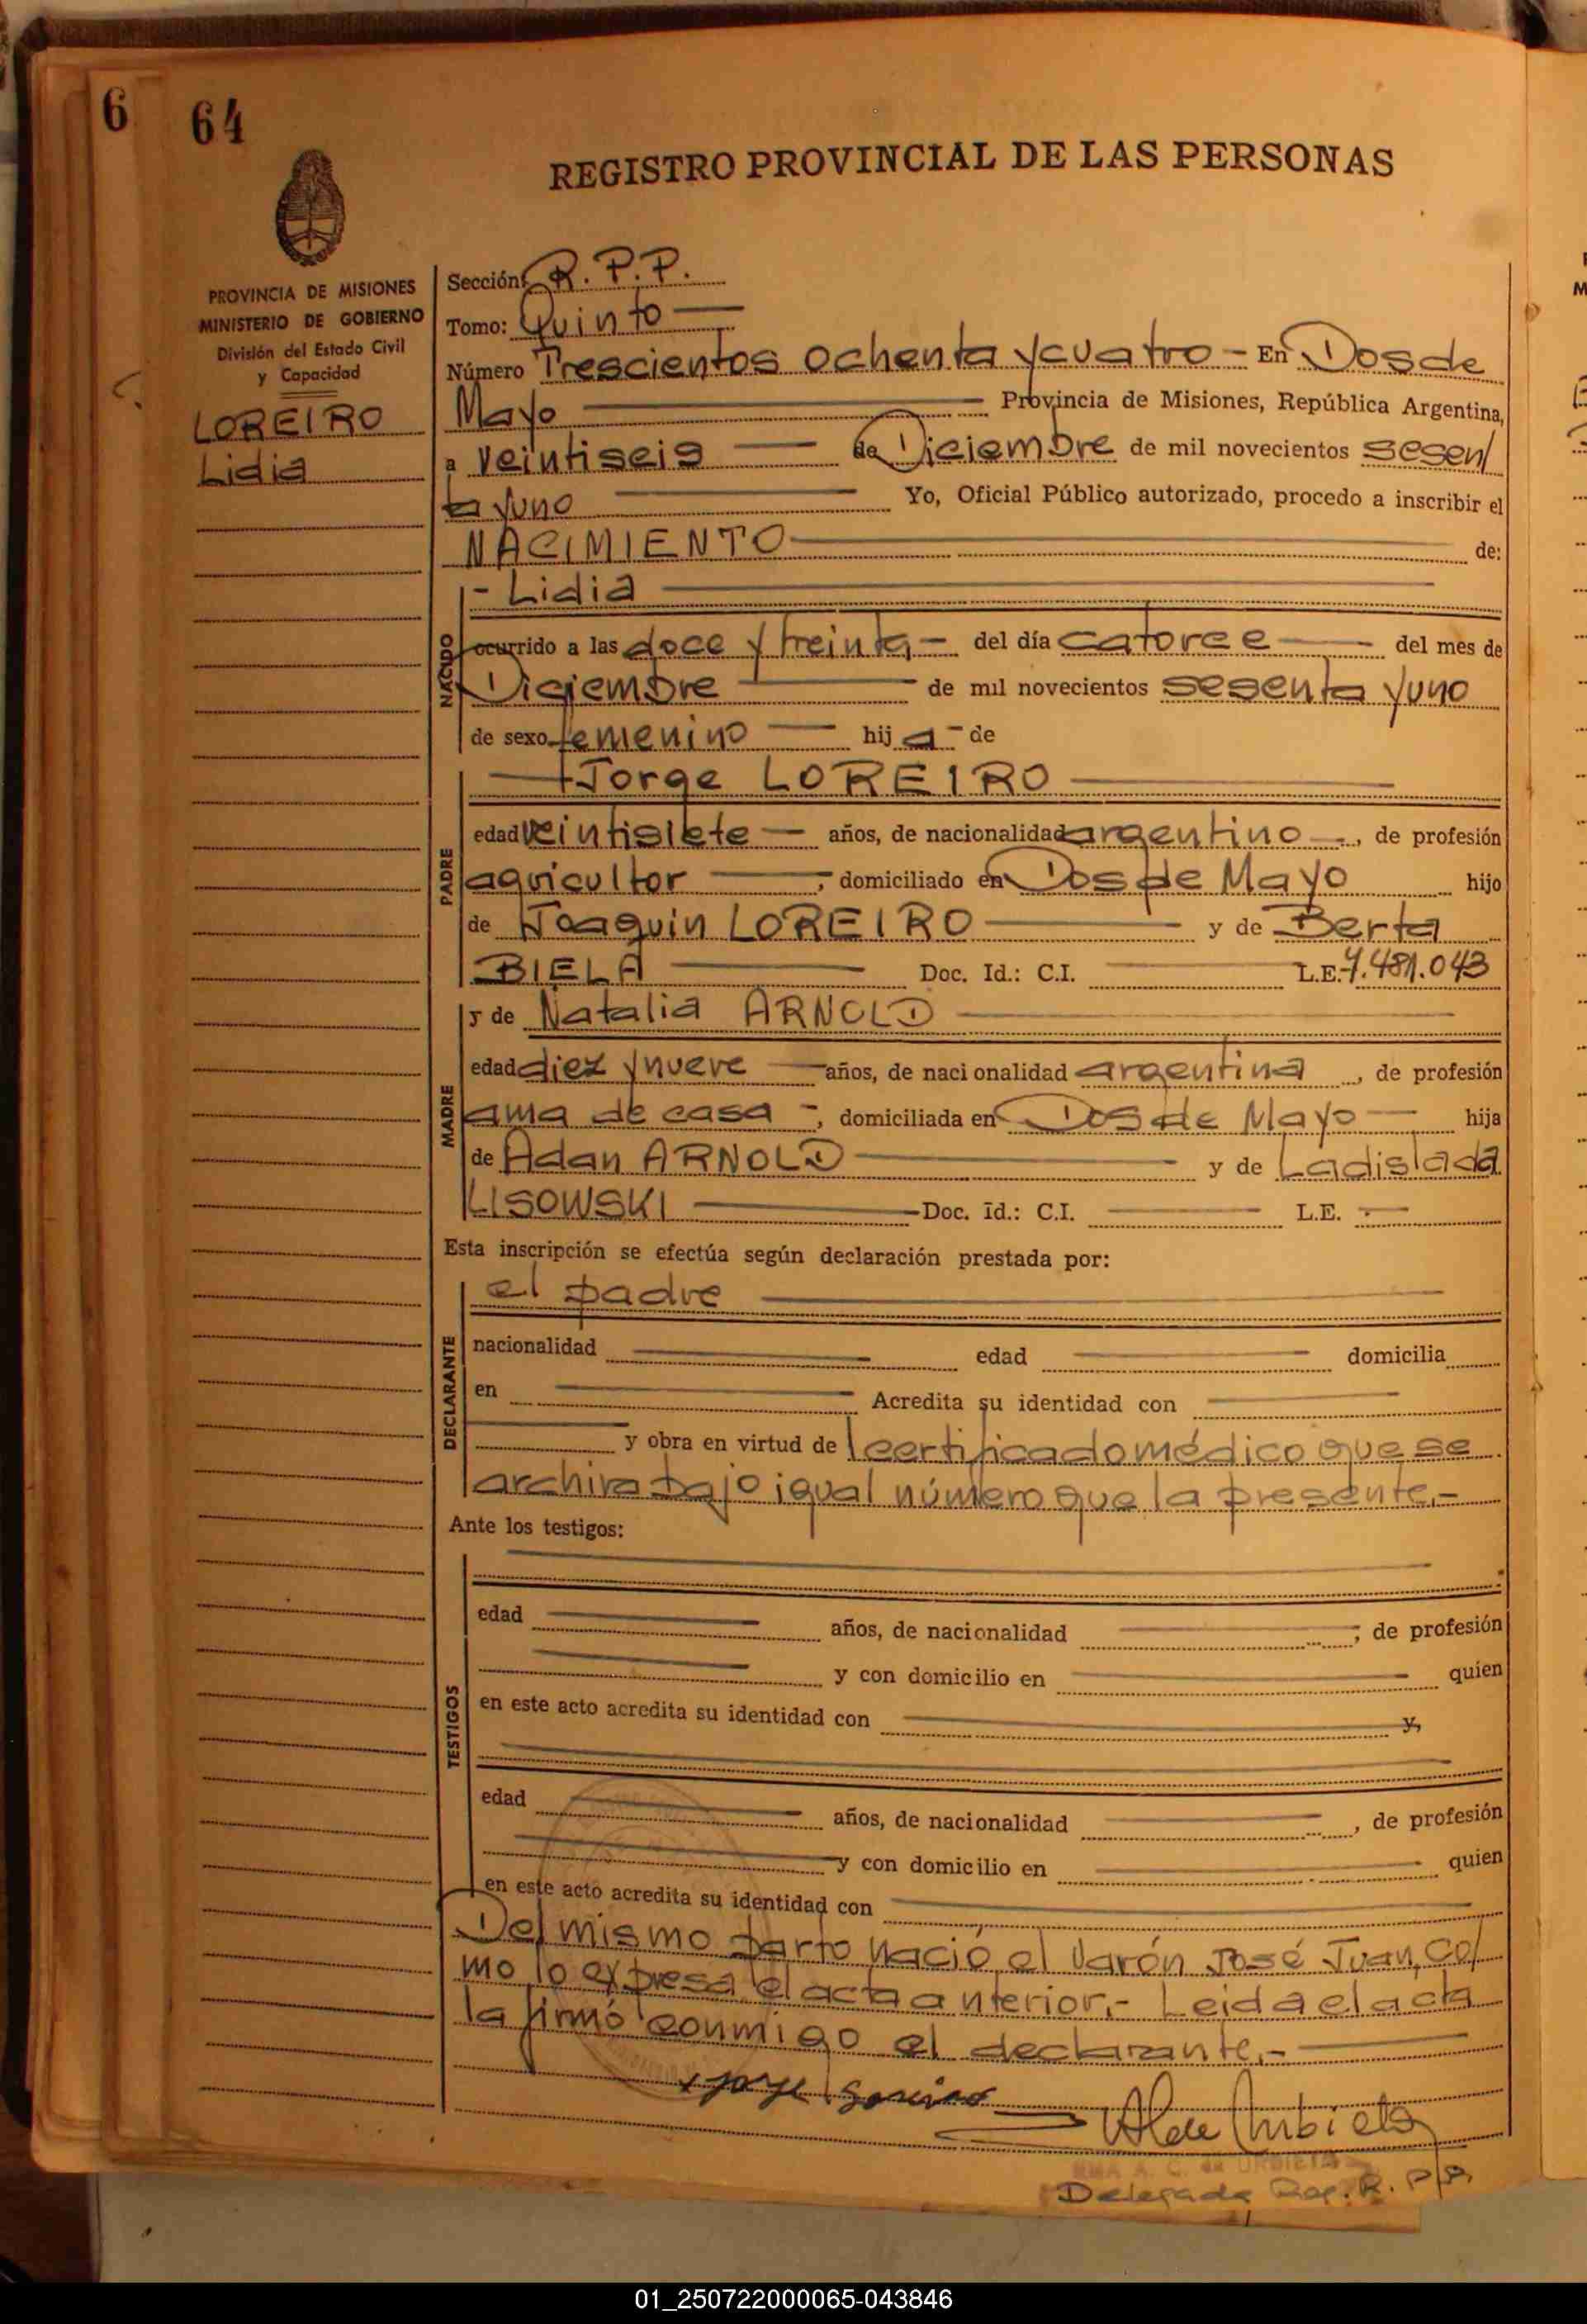 6
64
REGISTRO PROVINCIAL DE LAS PERSONAS
PROVINCIA DE MISIONES
MINISTERIO DE GOBIERNO
División del Estado Civil
y Capacidad
LOREIRO
Lidia
Sección: R. P. P.
Tomo: Quinto
Número Trescientos ochenta y cuatro - En Dos de
Mayo Provincia de Misiones, República Argentina,
a veintiseis de Diciembre de mil novecientos sesen/
ta y uno Yo, Oficial Público autorizado, procedo a inscribir el
NACIMIENTO de:
NACIDO
- Lidia
ocurrido a las doce y treinta - del día catorce del mes de
Diciembre de mil novecientos sesenta y uno
de sexo femenino hij a - de
PADRE
Jorge LOREIRO
edad veintisiete - años, de nacionalidad argentino -, de profesión
agricultor, domiciliado en Dos de Mayo hijo
de Joaquin LOREIRO y de Berta
BIELA Doc. Id.: C.I. L.E. 7.481.043
y de Natalia ARNOLD
MADRE
edad diez y nueve años, de nacionalidad argentina, de profesión
ama de casa -, domiciliada en Dos de Mayo hija
de Adan ARNOLD y de Ladislada
LISOWSKI Doc. Id.: C.I. L.E.
Esta inscripción se efectúa según declaración prestada por:
DECLARANTE
el padre
nacionalidad edad domicilia
en Acredita su identidad con
y obra en virtud de certificado médico que se
archiva bajo igual número que la presente.-
Ante los testigos:
TESTIGOS
edad años, de nacionalidad ; de profesión
y con domicilio en quien
en este acto acredita su identidad con y,
edad años, de nacionalidad , de profesión
y con domicilio en quien
en este acto acredita su identidad con
Del mismo parto nació el varón José Juan, co/
mo lo expresa el acta anterior.- Leida el acta
la firmó conmigo el declarante.-
Jorge Loreiro
de Urbieta
A. C. de URBIETA
Delegada R. P. P.
01_250722000065-043846